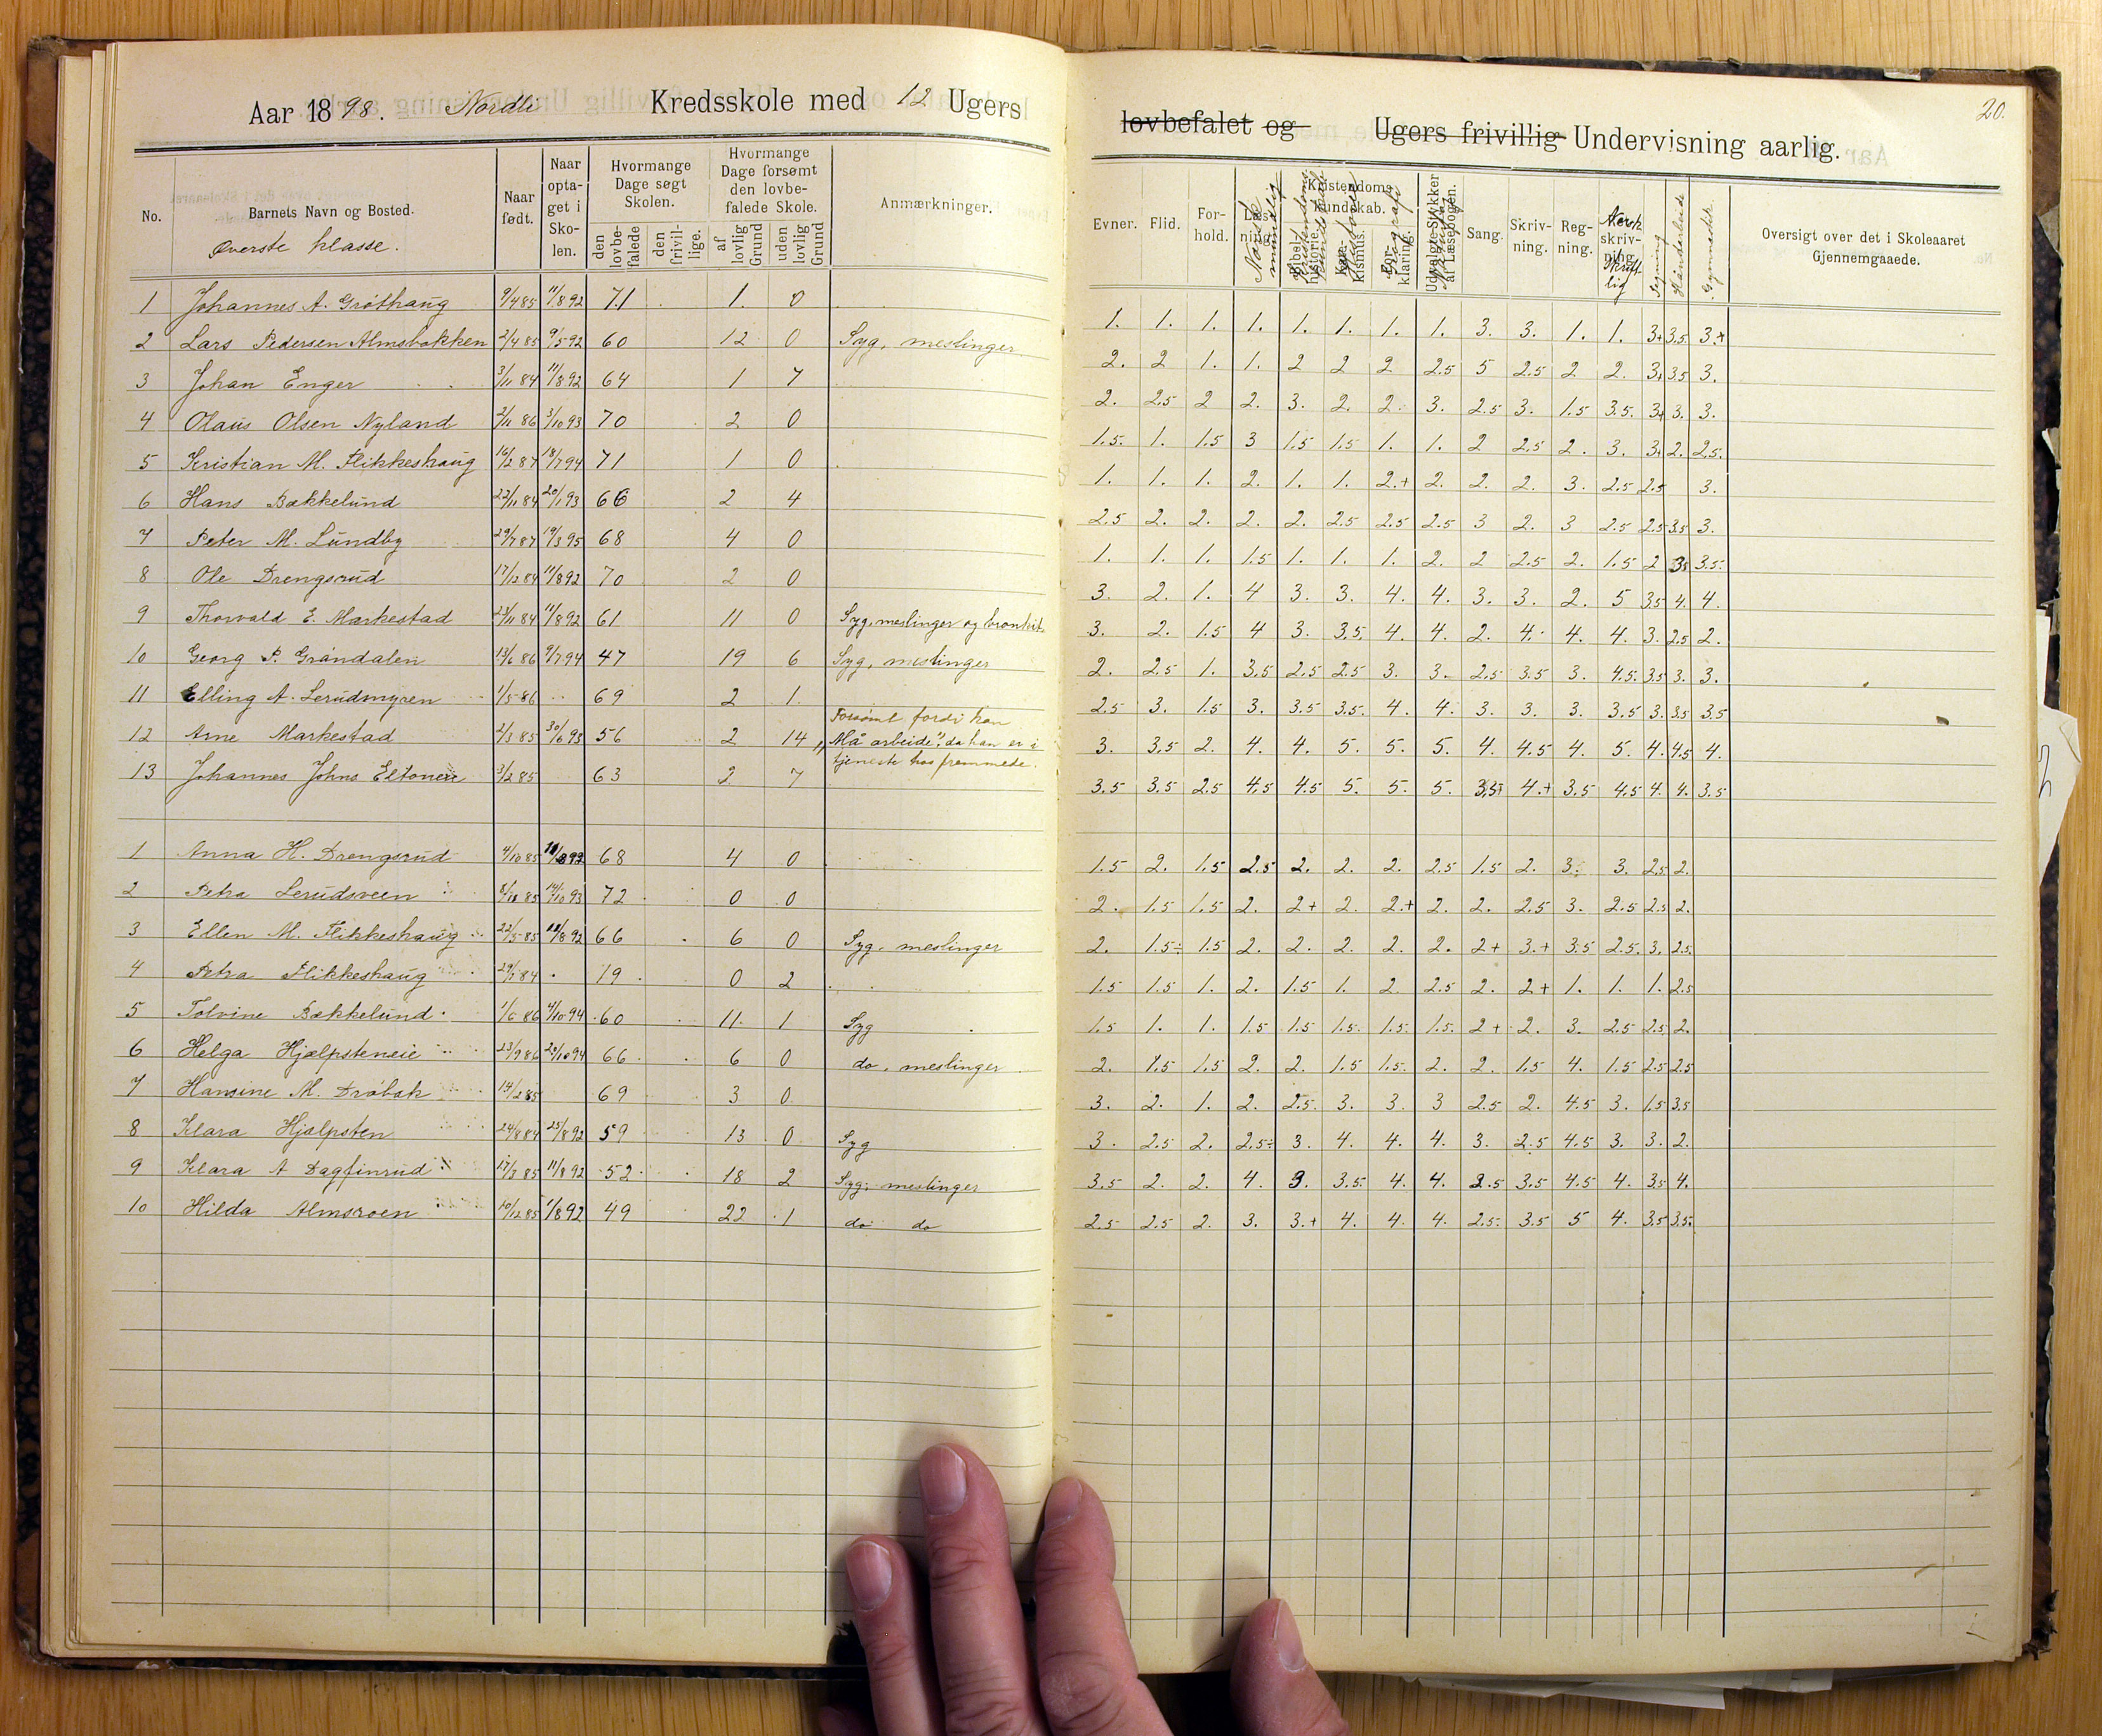 Aar 1898. Nordli Kredsskole med 12 Ugers
No.
Barnets Navn og Bosted.
Øverste klasse.
Naar født.
Naar opta- get i Sko- len.
Hvormange Dage søgt Skolen.
den lovbe- falede
den frivil- lige.
Hvormange Dage forsømt den lovbe- falede Skole.
af lovlig Grund
uden lovlig Grund
Anmærkninger.
1 Johannes A. Grøthaug 9/4 85 11/8 92 71 1. 0
2 Lars Pedersen Almsbakken 2/4 85 9/5 92 60 12 0 Syg, meslinger
3 Johan Enger 3/11 84 11/8 92 64 1 7
4 Olaus Olsen Nyland 2/11 86 3/10 93 70 2 0
5 Kristian M. Flikkeshaug 16/2 87 18/7 94 71 1 0
6 Hans Bækkelund 22/11 84 20/1 93 66 2 4
7 Peter M. Lundby 29/7 87 19/3 95 68 4 0
8 Ole Drengsrud 17/12 84 11/8 92 70 2 0
9 Thorvald E. Markestad 23/11 84 11/8 92 61 11 0 Syg, meslinger og bronkit.
10 Georg P. Grøndalen 13/6 86 9/7 94 47 19 6 Syg, meslinger
11 Elling A. Lerudmyren 1/5 86 69 2 1.
12 Arne Markestad 2/3 85 30/6 93 56 2 14 Forsømt fordi han
"Må arbeide", da han er i
tjeneste hos fremmede.
13 Johannes Johns Eltoneie 3/2 85 63 2 7
1 Anna H. Drengsrud 4/10 85 11/8 92 68 4 0
2 Petra Lerudsveen 85 14/10 93 72 0 0
3 Ellen M. Flikkeshaug 22/5 85 11/8 92 66 6 0 Syg, meslinger
4 Petra Flikkeshaug 84 19 0 2
5 Tolvine Bækkelund 1/6 86 4/10 94 60 11. 1 Syg
6 Helga Hjælpsteneie 23/9 86 20/10 94 66 6 0 do, meslinger
7 Hansine M. Drøbak 14/2 85 69 3 0
8 Klara Hjælpsten 24/8 84 25/8 92 59 13 0 Syg
9 Klara A Dagfinrud 17/3 85 11/8 92 52 18 2 Syg, meslinger
10 Hilda Almsroen 10/12 85 1/8 92 49 22 1 do do
20.
lovbefalet og Ugers frivillig Undervisning aarlig.
Evner.
Flid.
For- hold.
Læs- ning.
Norsk mundtlig
Kristendoms- kundskab.
Bibel- historie.
Kristendoms kundskab
Kate- kismus.
Historie
For- klaring.
Geografi
Udvalgte Stykker af Læsebogen.
Sang.
Skriv- ning.
Reg- ning.
Norsk
skriv- ning.
Skrift- lig
Tegning
Håndarbeide
Gymnastik
Oversigt over det i Skoleaaret Gjennemgaaede.
1. 1. 1. 1. 1. 1. 1. 1. 3. 3. 1. 1. 3+ 3.5 3.+
2. 2 1. 1. 2 2 2 2.5 5 2.5 2 2. 3+ 3.5 3.
2. 2.5 2 2. 3. 2. 2. 3. 2.5 3. 1.5 3.5. 3+ 3. 3.
1.5. 1. 1.5 3 1.5 1.5 1. 1. 2 2.5 2. 3. 3+ 2. 2.5.
1. 1. 1. 2. 1. 1. 2.+ 2. 2. 2. 3. 2.5 2.5 3.
2.5 2. 2. 2. 2. 2.5 2.5 2.5 3 2. 3 2.5 2.5 3.5 3.
1. 1. 1. 1.5 1. 1. 1. 2. 2 2.5 2. 1.5 2 3. 3.5.
3. 2. 1. 4 3. 3. 4. 4. 3. 3. 2. 5 3.5 4. 4.
3. 2. 1.5 4 3. 3.5 4. 4. 2. 4. 4. 4. 3. 2.5 2.
2. 2.5 1. 3.5 2.5 2.5 3. 3. 2.5 3.5 3. 4.5. 3.5 3. 3.
2.5 3. 1.5 3. 3.5 3.5. 4. 4. 3. 3. 3. 3.5 3. 3.5 3.5
3. 3.5 2. 4. 4. 5. 5. 5. 4. 4.5 4. 5. 4. 4.5 4.
3.5 3.5 2.5 4.5 4.5 5. 5. 5. 3.5 4.+ 3.5 4.5 4. 4. 3.5
1.5 2. 1.5 2.5 2. 2. 2. 2.5 1.5 2. 3. 3. 2.5 2.
2. 1.5 1.5 2. 2+ 2. 2.+ 2. 2. 2.5 3. 2.5 2.5 2.
2. 1.5÷ 1.5 2. 2. 2. 2. 2. 2+ 3.+ 3.5 2.5. 3. 2.5.
1.5 1.5 1. 2. 1.5 1. 2 2.5 2. 2+ 1. 1. 1. 2.5
1.5 1. 1. 1.5 1.5 1.5. 1.5. 1.5. 2+ 2. 3. 2.5 2.5 2.
2. 1.5 1.5 2. 2. 1.5 1.5. 2. 2. 1.5 4. 1.5 2.5 2.5
3. 2. 1. 2. 2.5. 3. 3. 3 2.5 2. 4.5 3. 1.5 3.5
3. 2.5 2. 2.5÷ 3. 4. 4. 4. 3. 2.5 4.5 3. 3. 2.
3.5 2. 2. 4. 3. 3.5. 4. 4. 2.5 3.5 4.5 4. 3.5 4.
2.5 2.5 2. 3. 3.+ 4. 4. 4. 2.5. 3.5 5 4. 3.5 3.5.